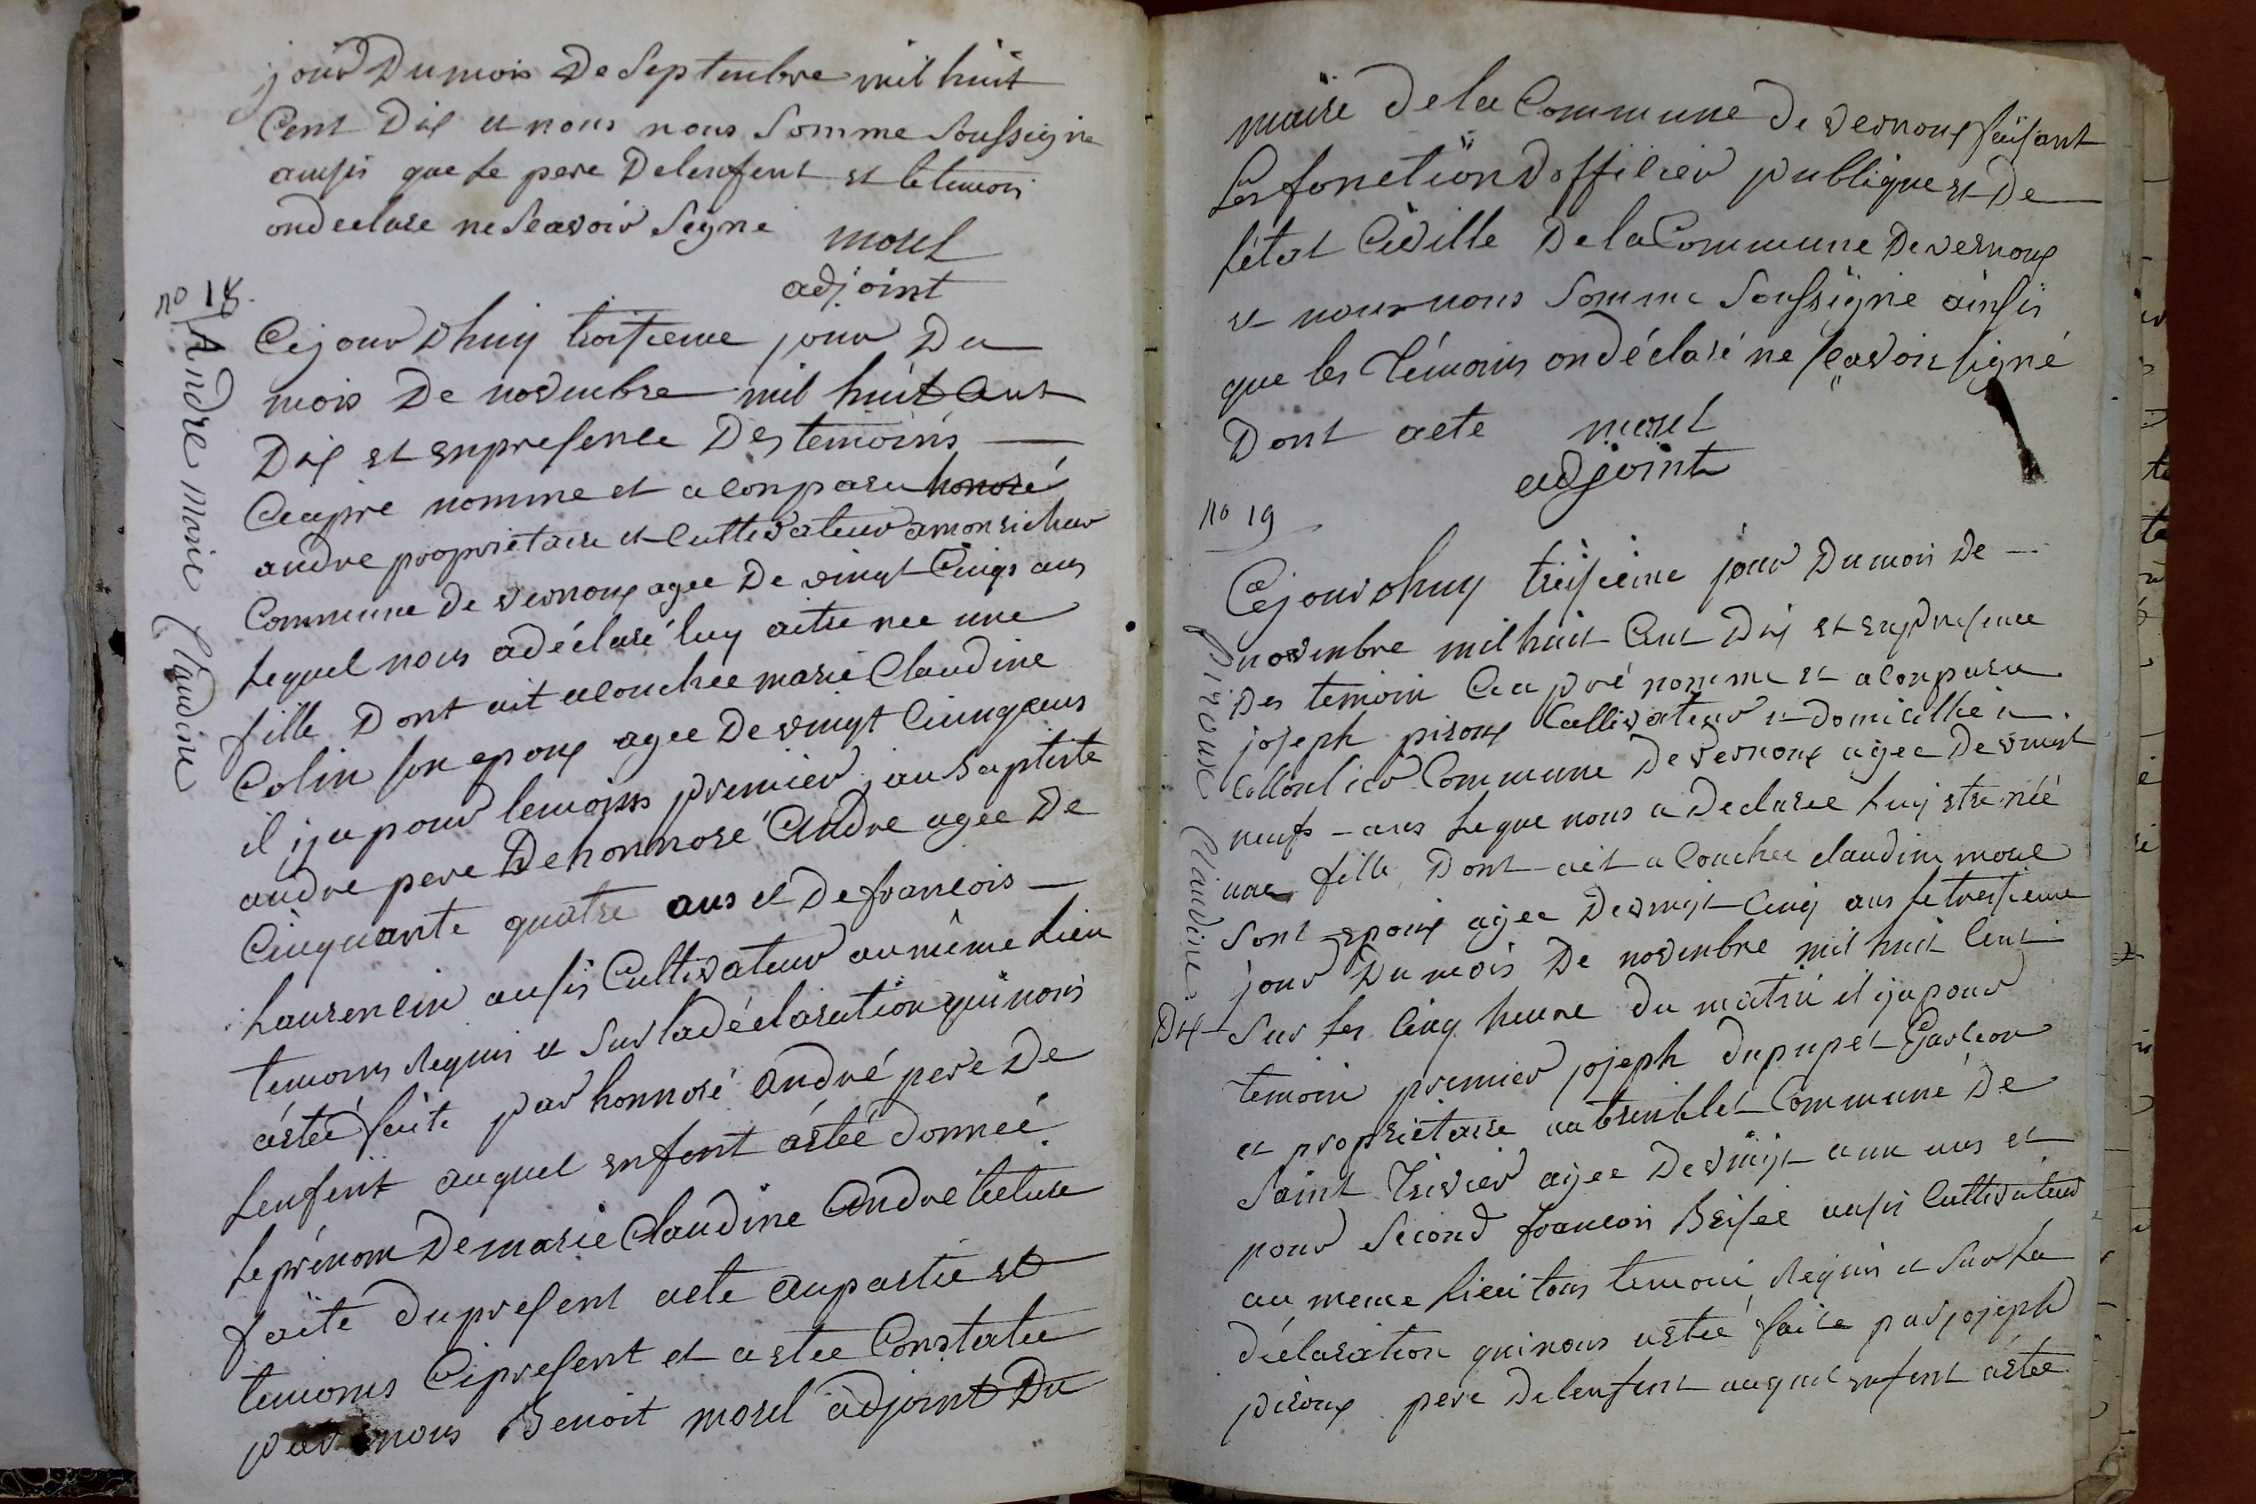 jour Du mois De Septembre mil huit
Cent Dix et nous nous Somme Soussigne
ainsis que le pere Delenfent et letemoin
ondeclare ne Scavoir Signe morel
adjoint
no 18.
Andre marie Claudine
Cejour Dhuy troisieme jour Du
mois De novembre mil huit Cent
Dix et enpresence Des temoins
Ceapre nomme et a Conparu honoré
andre propriétaire et Cultivateur a monricheur
Commune De vernoux agee De vingt Cinqs ans
Lequel nous adéclaré luy aitre nee une
fille Dont ait acouchee marie Claudine
Colin Son epoux agee De vingt Cinnq ans
il ya pour temoins premier jan Baptiste
andre pere De honnoré Andre agee De
Cinquante quatre ans et De francois
Laurencin ausis Cultivateur aumême Lieu
temoins Requis et Sur ladéclaration qui nous
astée faite par honnoré André pere De
Lenfent auquel enfent astée donneé
Le prénom De marie Claudine Andre lecture
faite Dupresent acte Aupartie et
temoins Cipresent et astee Constatee
par nous Benoit morel adjoint Du
maire De la Commune De vernoux faisant
Les fonction Dofficier publique et De
létat Civille De la Commune De vernoux
et nous nous Somme Soussigne ainsis
que les Témoins ondéclaré ne Scavoir signé
Dont acte morel
adjoint
no 19
piroux Claudine
Cejourdhuy treisieme jour Du mois De
novembre mil huit Cent Dix et enpresence
Des temoin Ceapré nomme et a Conparu
joseph piroux Cultivateur et domicilhé a
Collonlier Commune De vernoux agee De vingt
neufs - ans Leque nous a Declaree Luy etre neé
une fille Dont ait a Couchee claudine morel
Sont epoux agee De vingt Cinq ans Le treisieme
jour Du mois De novembre mil huit Cent
Dix Sur Les Cinq heure du matin il ya pour
temoin premier joseph dupupet Garcon
et propriétaire autremblet Commune De
Saint Trivier agee De vingt a un ans et
pour Second francois Brisee ausis Cultivateur
au meme Lieu tous temoin Requis et Sur La
déclaration qui nous astée faite par joseph
piroux pere Delenfent auquel enfent astée